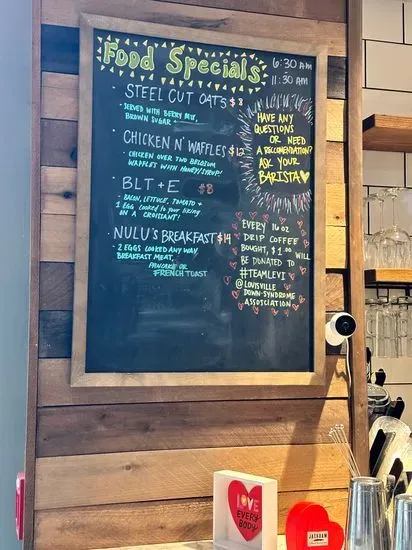 Food Specials:
6:30 AM
11:30 AM
STEEL CUT OATS $8
· SERVED WITH BERRY MIX,
BROWN SUGAR
CHICKEN N' WAFFLES $12
· CHICKEN OVER TWO BELGIUM
WAFFLES WITH HONEY/SYRUP!
BLT + E $8
· BACON, LETTUCE, TOMATO +
1 EGG COOKED to your liking
ON A CROISSANT!
NULU'S BREAKFAST $14
· 2 EGGS COOKED ANY WAY,
BREAKFAST MEAT,
PANCAKE OR
FRENCH TOAST
HAVE ANY
QUESTIONS
OR NEED
A RECCOMENDATION?
ASK YOUR
BARISTA
EVERY 16 OZ
DRIP COFFEE
BOUGHT, $1.00
WILL
BE DONATED TO
#TEAMLEVI
@LOUISVILLE
DOWN-SYNDROME
ASSOCIATION
LOVE
EVERY
BODY